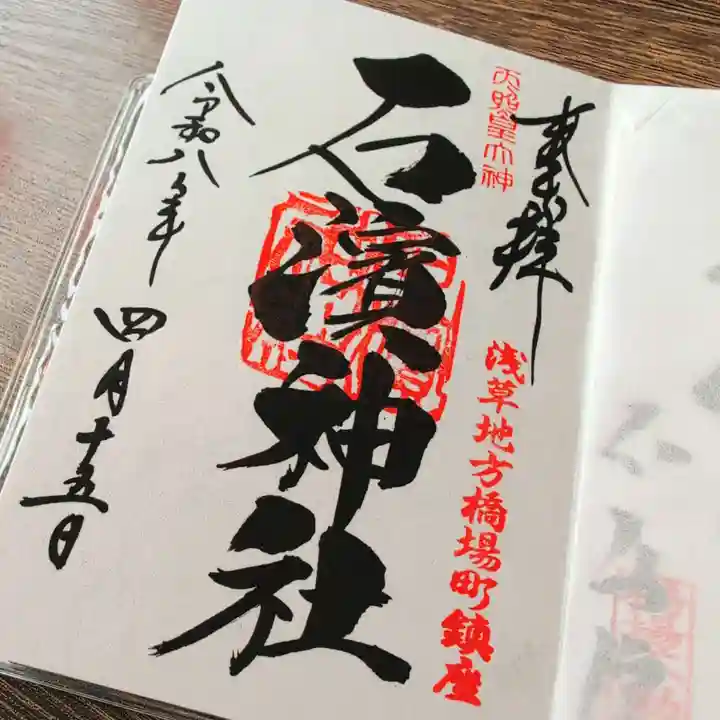 奉拝
天照皇大神
浅草地方橋場町鎮座
石濱神社
令和八年
四月十五日